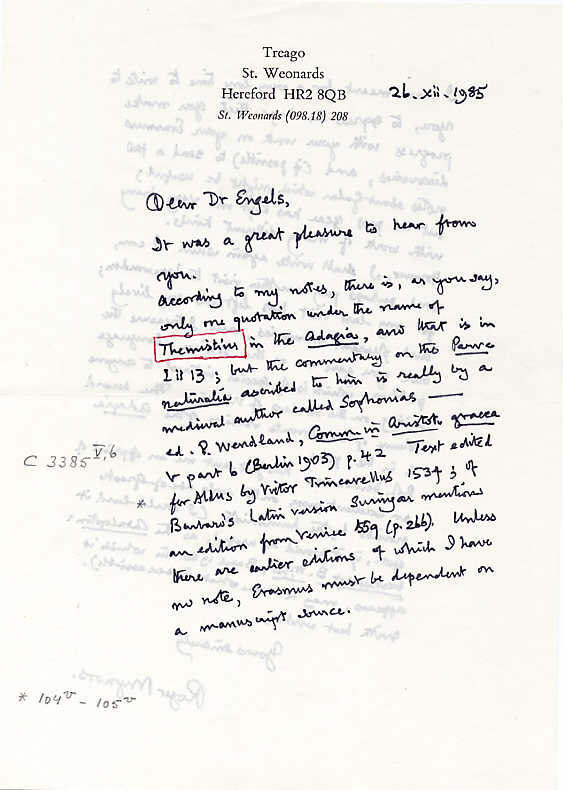 Treago
St. Weonards
Hereford HR2 8QB
26. xii. 1985
St. Weonards (098.18) 208
Dear Dr Engels,
It was a great pleasure to hear from
you.
According to my notes, there is, as you say,
only one quotation under the name of
Themistius in the Adagia, and that is in
I ii 13 ; but the commentary on the Parva
naturalia ascribed to him is really by a
medieval author called Sophonias —
ed. P. Wendland, Comm. in Aristot. graeca
V part 6 (Berlin 1903) p. 42 Text edited
for Aldus by Victor Trincavellus 1534 ; of
Barbaro's Latin version Suringar mentions
an edition from Venice 1559 (p. 266). Unless
there are earlier editions of which I have
no note, Erasmus must be dependent on
a manuscript source.
C 3385 V,6
*
* 104v - 105v